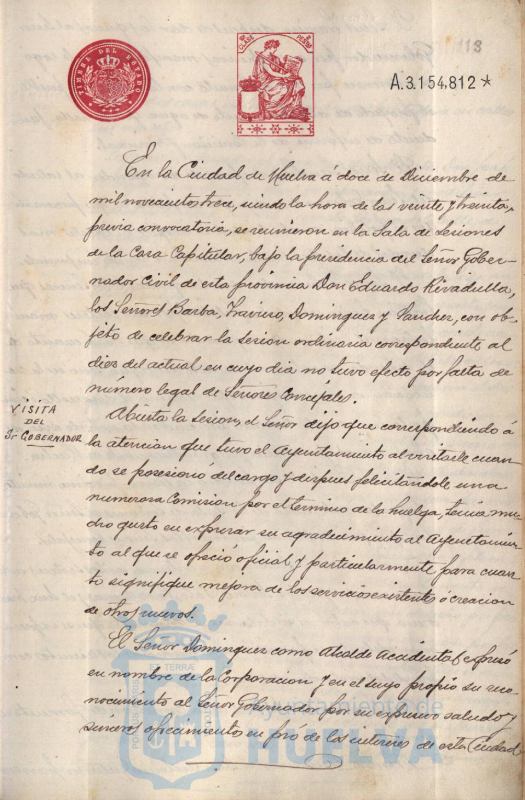 TIMBRE DEL ESTADO
CLASE
A.3.154.812*
En la Ciudad de Huelva á doce de Diciembre de
mil novecientos trece, siendo la hora de las veinte y treinta,
previa convocatoria, se reunieron en la Sala de Sesiones
de la Casa Capitular, bajo la presidencia del Señor Gober-
nador Civil de esta provincia Don Eduardo Rivadulla,
los Señores Barba, Traviño, Dominguez y Sanchez, con ob-
jeto de celebrar la sesion ordinaria correspondiente al
diez del actual en cuyo dia no tuvo efecto por falta de
número legal de Señores Concejales.
VISITA
DEL
Sr GOBERNADOR
Abierta la sesion, el Señor dijo que correspondiendo á
la atencion que tuvo el Ayuntamiento al visitarle cuan-
do se posesionó del cargo y despues felicitándole una
numerosa Comision por el termino de la huelga, tenia mu-
cho gusto en expresar su agradecimiento al Ayuntamien-
to al que se ofreció oficial y particularmente para cuan-
to signifique mejora de los servicios existentes ó creacion
de otros nuevos.
El Señor Dominguez como Alcalde Accidental expresó
en nombre de la Corporacion y en el suyo propio su reco-
nocimiento al Señor Gobernador por su expresivo saludo y
sinceros ofrecimientos en pró de los intereses de esta Ciudad
Ayuntamiento de
HUELVA